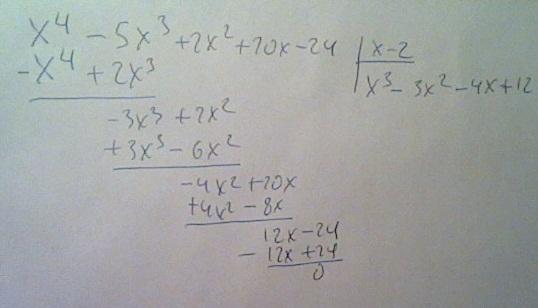 x⁴ - 5x³ + 2x² + 20x - 24 | x - 2
-x⁴ + 2x³
x³ - 3x² - 4x + 12
-3x³ + 2x²
+3x³ - 6x²
-4x² + 20x
+4x² - 8x
12x - 24
- 12x + 24
0